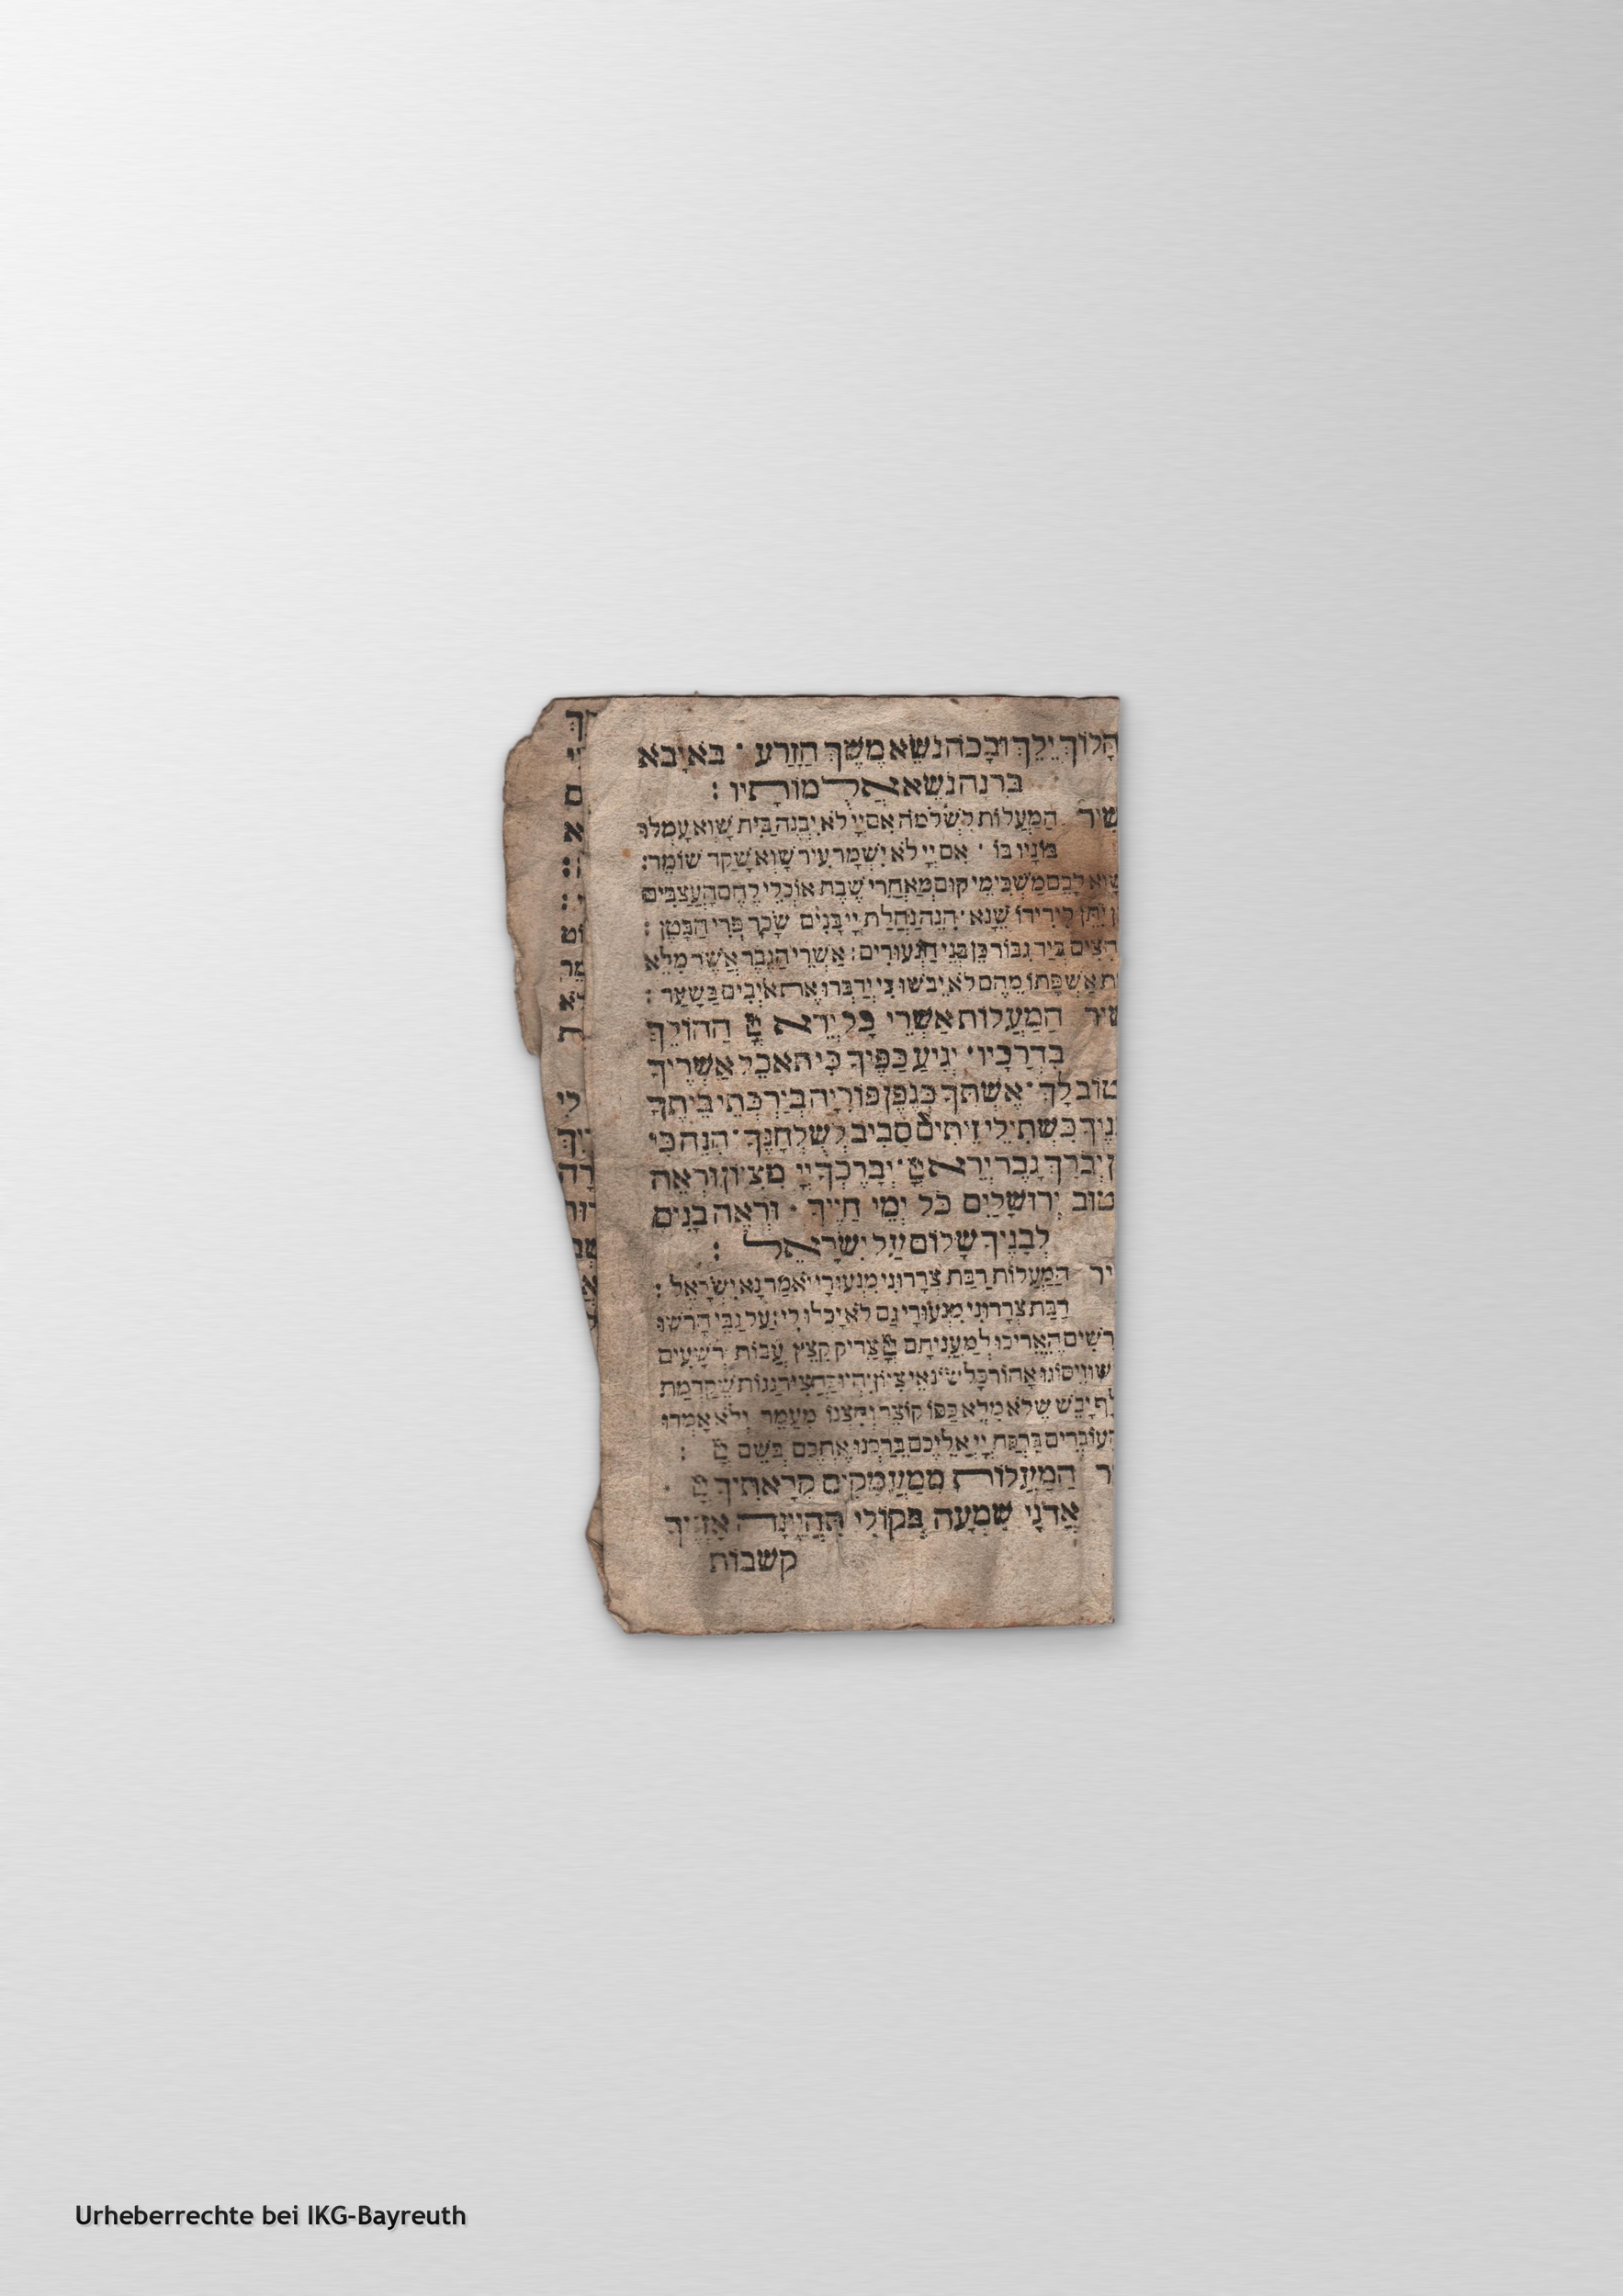 הָלוֹךְ יֵלֵךְ וּבָכֹה נֹשֵׂא מֶשֶׁךְ הַזָּרַע · בֹּא יָבֹא
בְרִנָּה נֹשֵׂא אֲלֻמוֹתָיו :
שיר המעלות לשלמה אם יי לא יבנה בית שוא עמלו
בוניו בו · אם יי לא ישמר עיר שוא שקד שומר :
שוא לכם משכימי קום מאחרי שבת אוכלי לחם העצבים
יתן לידידו שנא · הנה נחלת יי בנים שכר פרי הבטן :
חצים ביד גבור כן בני הנעורים : אשרי הגבר אשר מלא
את אשפתו מהם לא יבשו כי ידברו את אויבים בשער :
שיר המעלות אשרי כל ירא ההולך
בדרכיו · יגיע כפיך כי תאכל אשריך
וטוב לך · אשתך כגפן פוריה בירכתי ביתך
בניך כשתילי זיתים סביב לשלחנך · הנה כי
כן יברך גבר ירא · יברכך יי מציון וראה
בטוב ירושלים כל ימי חייך · וראה בנים
לבניך שלום על ישראל :
שיר המעלות רבת צררוני מנעורי יאמר נא ישראל :
רבת צררוני מנעורי גם לא יכלו לי : על גבי חרשו
חרשים האריכו למעניתם צדיק קצץ עבות רשעים
יבשו ויסוגו אחור כל שונאי ציון יהיו כחציר גגות שקדמת
שלף יבש שלא מלא כפו קוצר וחצנו מעמר ולא אמרו
העוברים ברכת יי אליכם ברכנו אתכם בשם :
שיר המעלות ממעמקים קראתיך ·
אדני שמעה בקולי תהיינה אזניך
קשבות
Urheberrechte bei IKG-Bayreuth